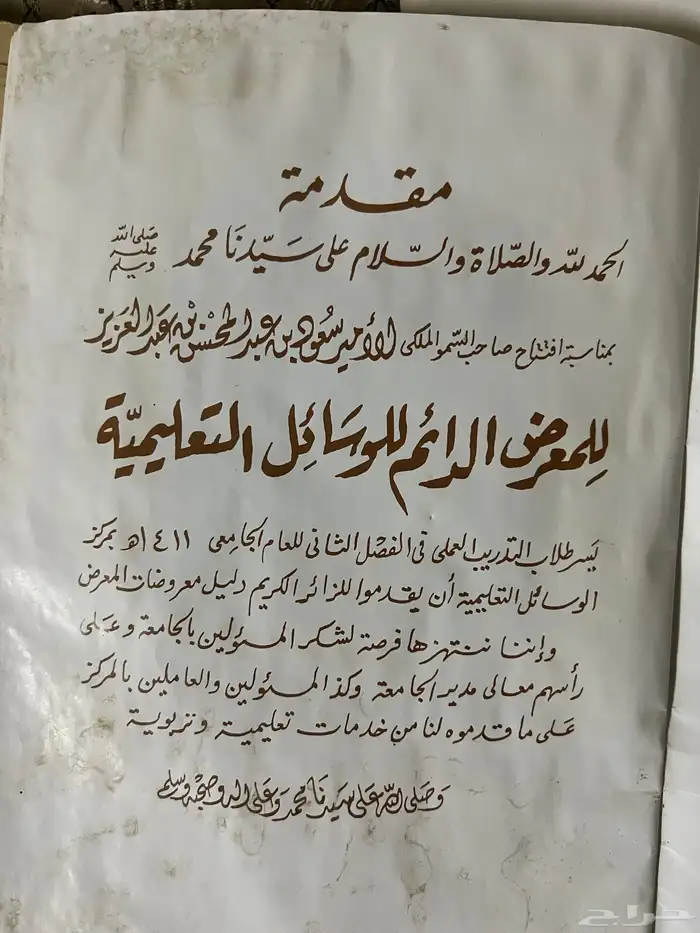 مقدمة
الحمد لله والصّلاة والسّلام على سَيّدنَا محمد صَلى الله عليه وسَلم
بمناسبة افتتاح صاحب السّمو الملكى الأمير سعُود بن عبد المحْسن بن عَبد العَزيز
لِلمعرض الدائم للوسَائِل التعليميّة
يَسر طلاب التدريب العملى فى الفصْل الثانى للعام الجامِعى ١٤١١هـ بمركز
الوسائل التعليمية أن يقدموا للزائر الكريم دليل معروضات المعرض
وإننا ننتهزها فرصة لشكر المسئولين بالجامعة وعَلى
رأسهم معالى مدير الجامعة وكذا المسئولين والعاملين بالمركز
عَلى ما قدموه لنا من خدمات تعليمية وتربوية
وَصَلى الله عَلى سَيدنَا محمد وَعَلى اله وصَحْبه وسَلم
حراج